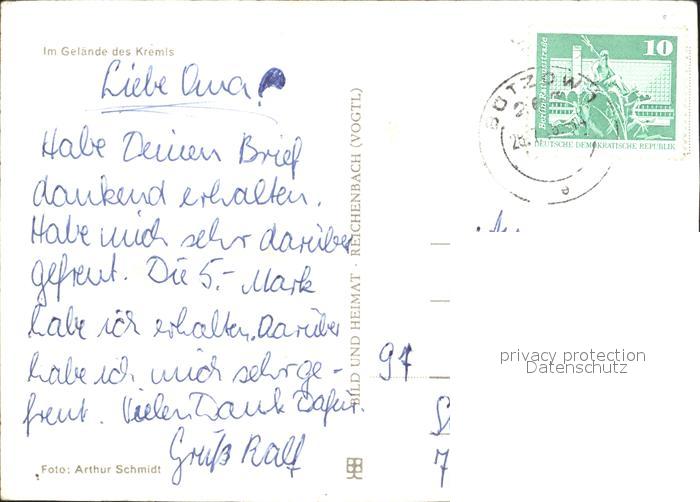 Im Gelände des Kremls
Liebe Oma!
Habe Deinen Brief
dankend erhalten.
Habe mich sehr darüber
gefreut. Die 5.- Mark
habe ich erhalten. Darüber
habe ich mich sehr ge-
freut. Vielen Dank dafür.
Gruß Ralf
Foto: Arthur Schmidt
BILD UND HEIMAT · REICHENBACH (VOGTL)
10
Berlin-Rathausstraße
DEUTSCHE DEMOKRATISCHE REPUBLIK
BÜTZOW
privacy protection
Datenschutz